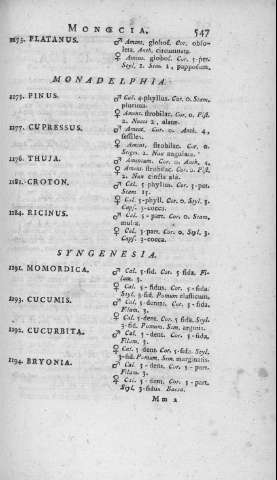 MONOECIA. 547
1273. PLATANUS. ♂ Ament. globos. Cor. obso-
leta. Anth. circumnata.
♀ Ament. globos. Cor. 5-par.
Styl. 2. Sem 1, papposum.
MONADELPHIA.
1275. PINUS. ♂ Cal. 4-phyllus. Cor. 0. Stam.
plurima.
♀ Ament. strobilac. Cor. 0. Pist.
2. Nuces 2, alatæ.
1277. CUPRESSUS. ♂ Ament. Cor. 0. Anth. 4,
sessiles.
♀ Ament. strobilac. Cor. 0.
Stigm. 2. Nux angulata.
1276. THUJA. ♂ Amentum. Cor. 0. Anth. 4.
♀ Ament. strobilac. Cor. 0. Pist.
2. Nux cincta ala.
1182. CROTON. ♂ Cal. 5 phyllus. Cor. 5-pet.
Stam. 15.
♀ Cal. 5-phyll. Cor. 0. Styl. 3.
Caps. 3-cocca.
1184. RICINUS. ♂ Cal. 5-part. Cor. 0. Stam.
multa.
♀ Cal. 3-part. Cor. 0. Styl. 3.
Caps. 3-cocca.
SYNGENESIA.
1191. MOMORDICA. ♂ Cal. 5-fid. Cor. 5 fida. Fi-
lam. 3.
♀ Cal. 5-fidus. Cor. 5-fida.
Styl. 3-fid. Pomum elasticum.
1193. CUCUMIS. ♂ Cal. 5-dentat. Cor. 5-fida.
Filam. 3.
♀ Cal. 5-dent. Cor. 5 fida. Styl.
3-fid. Pomum. Sem. argutis.
1192. CUCURBITA. ♂ Cal. 5-dent. Cor. 5-fida.
Filam. 3.
♀ Cal. 5 dent. Cor. 5-fida. Styl.
3-fid. Pomum. Sem. marginatis.
1194. BRYONIA. ♂ Cal. 5-dent. Cor. 5-part.
Filam. 3.
♀ Cal. 5-dent. Cor. 5-part.
Styl. 3-fidus. Bacca.
Mm 2